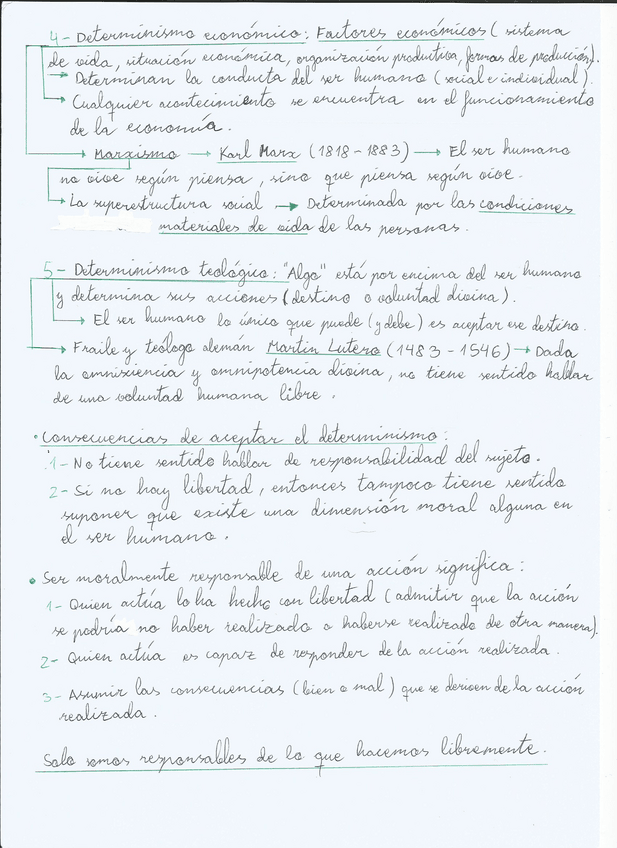 4- Determinismo económico: Factores económicos (sistema
de vida, situación económica, organización productiva, formas de producción).
→ Determinan la conducta del ser humano (social e individual).
→ Cualquier acontecimiento se encuentra en el funcionamiento
de la economía.
→ Marxismo → Karl Marx (1818-1883) → El ser humano
no vive según piensa, sino que piensa según vive.
→ La superestructura social → Determinada por las condiciones
materiales de vida de las personas.
5- Determinismo teológico: "Algo" está por encima del ser humano
y determina sus acciones (destino o voluntad divina).
→ El ser humano lo único que puede (y debe) es aceptar ese destino.
→ Fraile y teólogo alemán Martin Lutero (1483-1546) → Dada
la omnisciencia y omnipotencia divina, no tiene sentido hablar
de una voluntad humana libre.
• Consecuencias de aceptar el determinismo:
1- No tiene sentido hablar de responsabilidad del sujeto.
2- Si no hay libertad, entonces tampoco tiene sentido
suponer que existe una dimensión moral alguna en
el ser humano.
• Ser moralmente responsable de una acción significa:
1- Quien actúa lo ha hecho con libertad (admitir que la acción
se podría no haber realizado o haberse realizado de otra manera).
2- Quien actúa es capaz de responder de la acción realizada.
3- Asumir las consecuencias (bien o mal) que se deriven de la acción
realizada.
Solo somos responsables de lo que hacemos libremente.